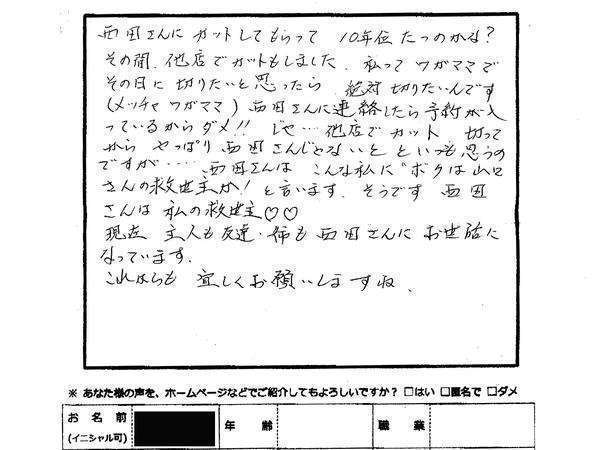 西田さんに カットしてもらって 10年位 たつのかな?
その間、他店でカットもしました、私って ワガママで
その日に 切りたいと思ったら 絶対 切りたいんです
(メッチャ ワガママ) 西田さんに連絡したら予約が入
っているからダメ!! じゃ…他店でカット 切って
から やっぱり 西田さんじゃないと といつも思うの
ですが…… 西田さんは こんな私に"ボクは山口
さんの救世主か! と言います。そうです 西田
さんは 私の救世主♡♡
現在 主人も友達・姉も西田さんに お世話に
なっています。
これからも 宜しくお願いしますね。
※ あなた様の声を、ホームページなどでご紹介してもよろしいですか? □はい □匿名で □ダメ
お 名 前
(イニシャル可)
年 齢
職 業